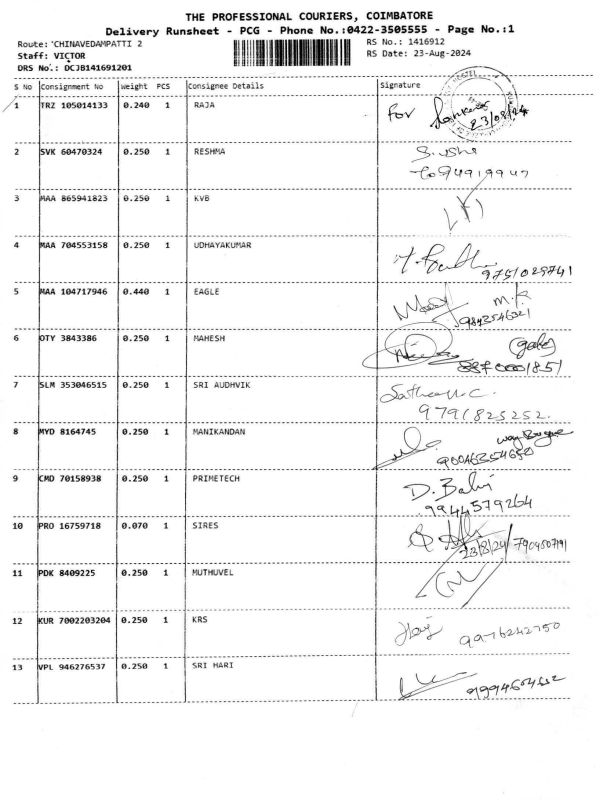 THE PROFESSIONAL COURIERS, COIMBATORE
Delivery Runsheet - PCG - Phone No.:0422-3505555 - Page No.:1
Route:'CHINAVEDAMPATTI 2
RS No.: 1416912
Staff: VICTOR
RS Date: 23-Aug-2024
DRS No.: DCJB141691201
S No Consignment No Weight PCS Consignee Details Signature
1 TRZ 105014133 0.240 1 RAJA For 23/08/24
2 SVK 60470324 0.250 1 RESHMA S. usha
3 MAA 865941823 0.250 1 KVB
4 MAA 704553158 0.250 1 UDHAYAKUMAR
9751029741
5 MAA 104717946 0.440 1 EAGLE M.K
9843546321
6 OTY 3843386 0.250 1 MAHESH
7 SLM 353046515 0.250 1 SRI AUDHVIK
9791825252.
8 MYD 8164745 0.250 1 MANIKANDAN
9 CMD 70158938 0.250 1 PRIMETECH D. Babi
9944579264
10 PRO 16759718 0.070 1 SIRES
23/8/24/
11 PDK 8409225 0.250 1 MUTHUVEL
12 KUR 7002203204 0.250 1 KRS
9976242750
13 VPL 946276537 0.250 1 SRI HARI